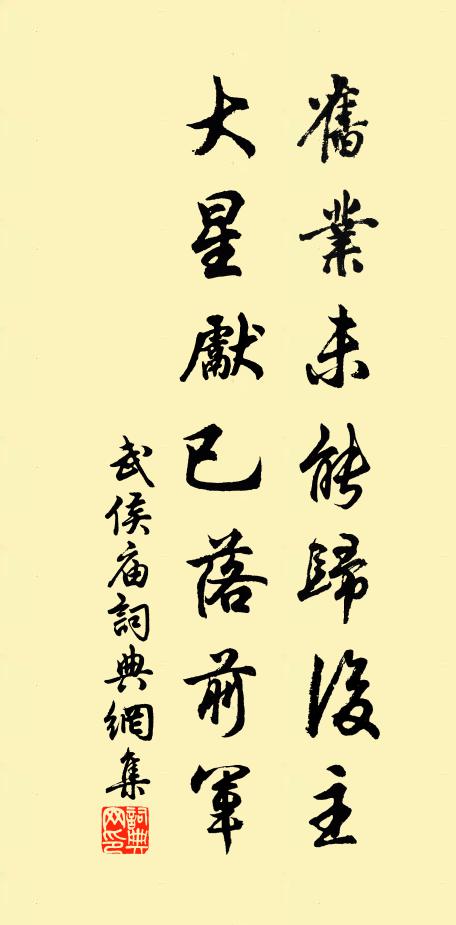 舊業未能歸後主
大星獻已落前軍
武侯庙詞典網集
詞典
网印